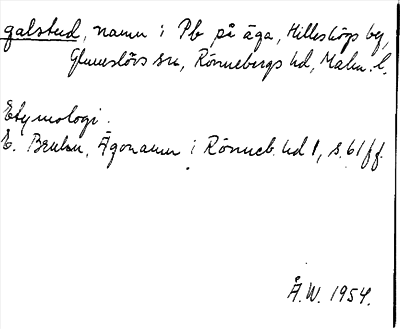 galstad, namn i Pb på äga, Hilleshögs by,
Glumslövs sn, Rönnebergs hd, Malm. l.
Etymologi.
E. Ägonamn i Rönneb. hd 1, s. 61 ff.
Å.W. 1954.